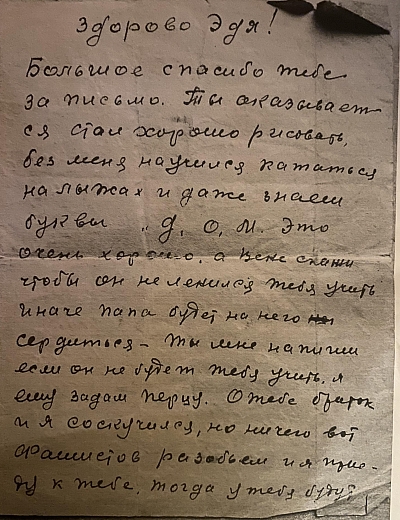 Здорово Эдя!
Большое спасибо тебе
за письмо. Ты оказывает-
ся стал хорошо рисовать,
без меня научился кататься
на лыжах и даже знаеш
буквы „Д, О, М. Это
очень хорошо, а Вене скажи
чтобы он не ленился тебя учить
иначе папа будет на него
сердиться – Ты мне напиши
если он не будет тебя учить, я
ему задам перцу. О тебе браток
и я соскучился, но ничего вот
фашистов разобьем и я прие-
ду к тебе, тогда у тебя будут